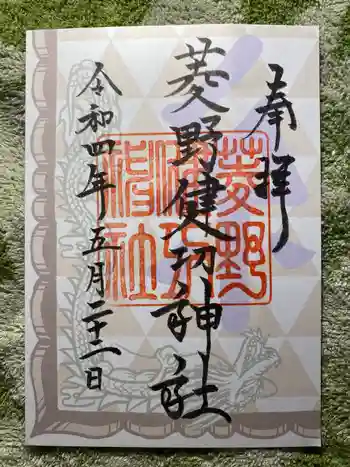 奉拝
菱野健功神社
令和四年五月二十二日
菱野健功神社